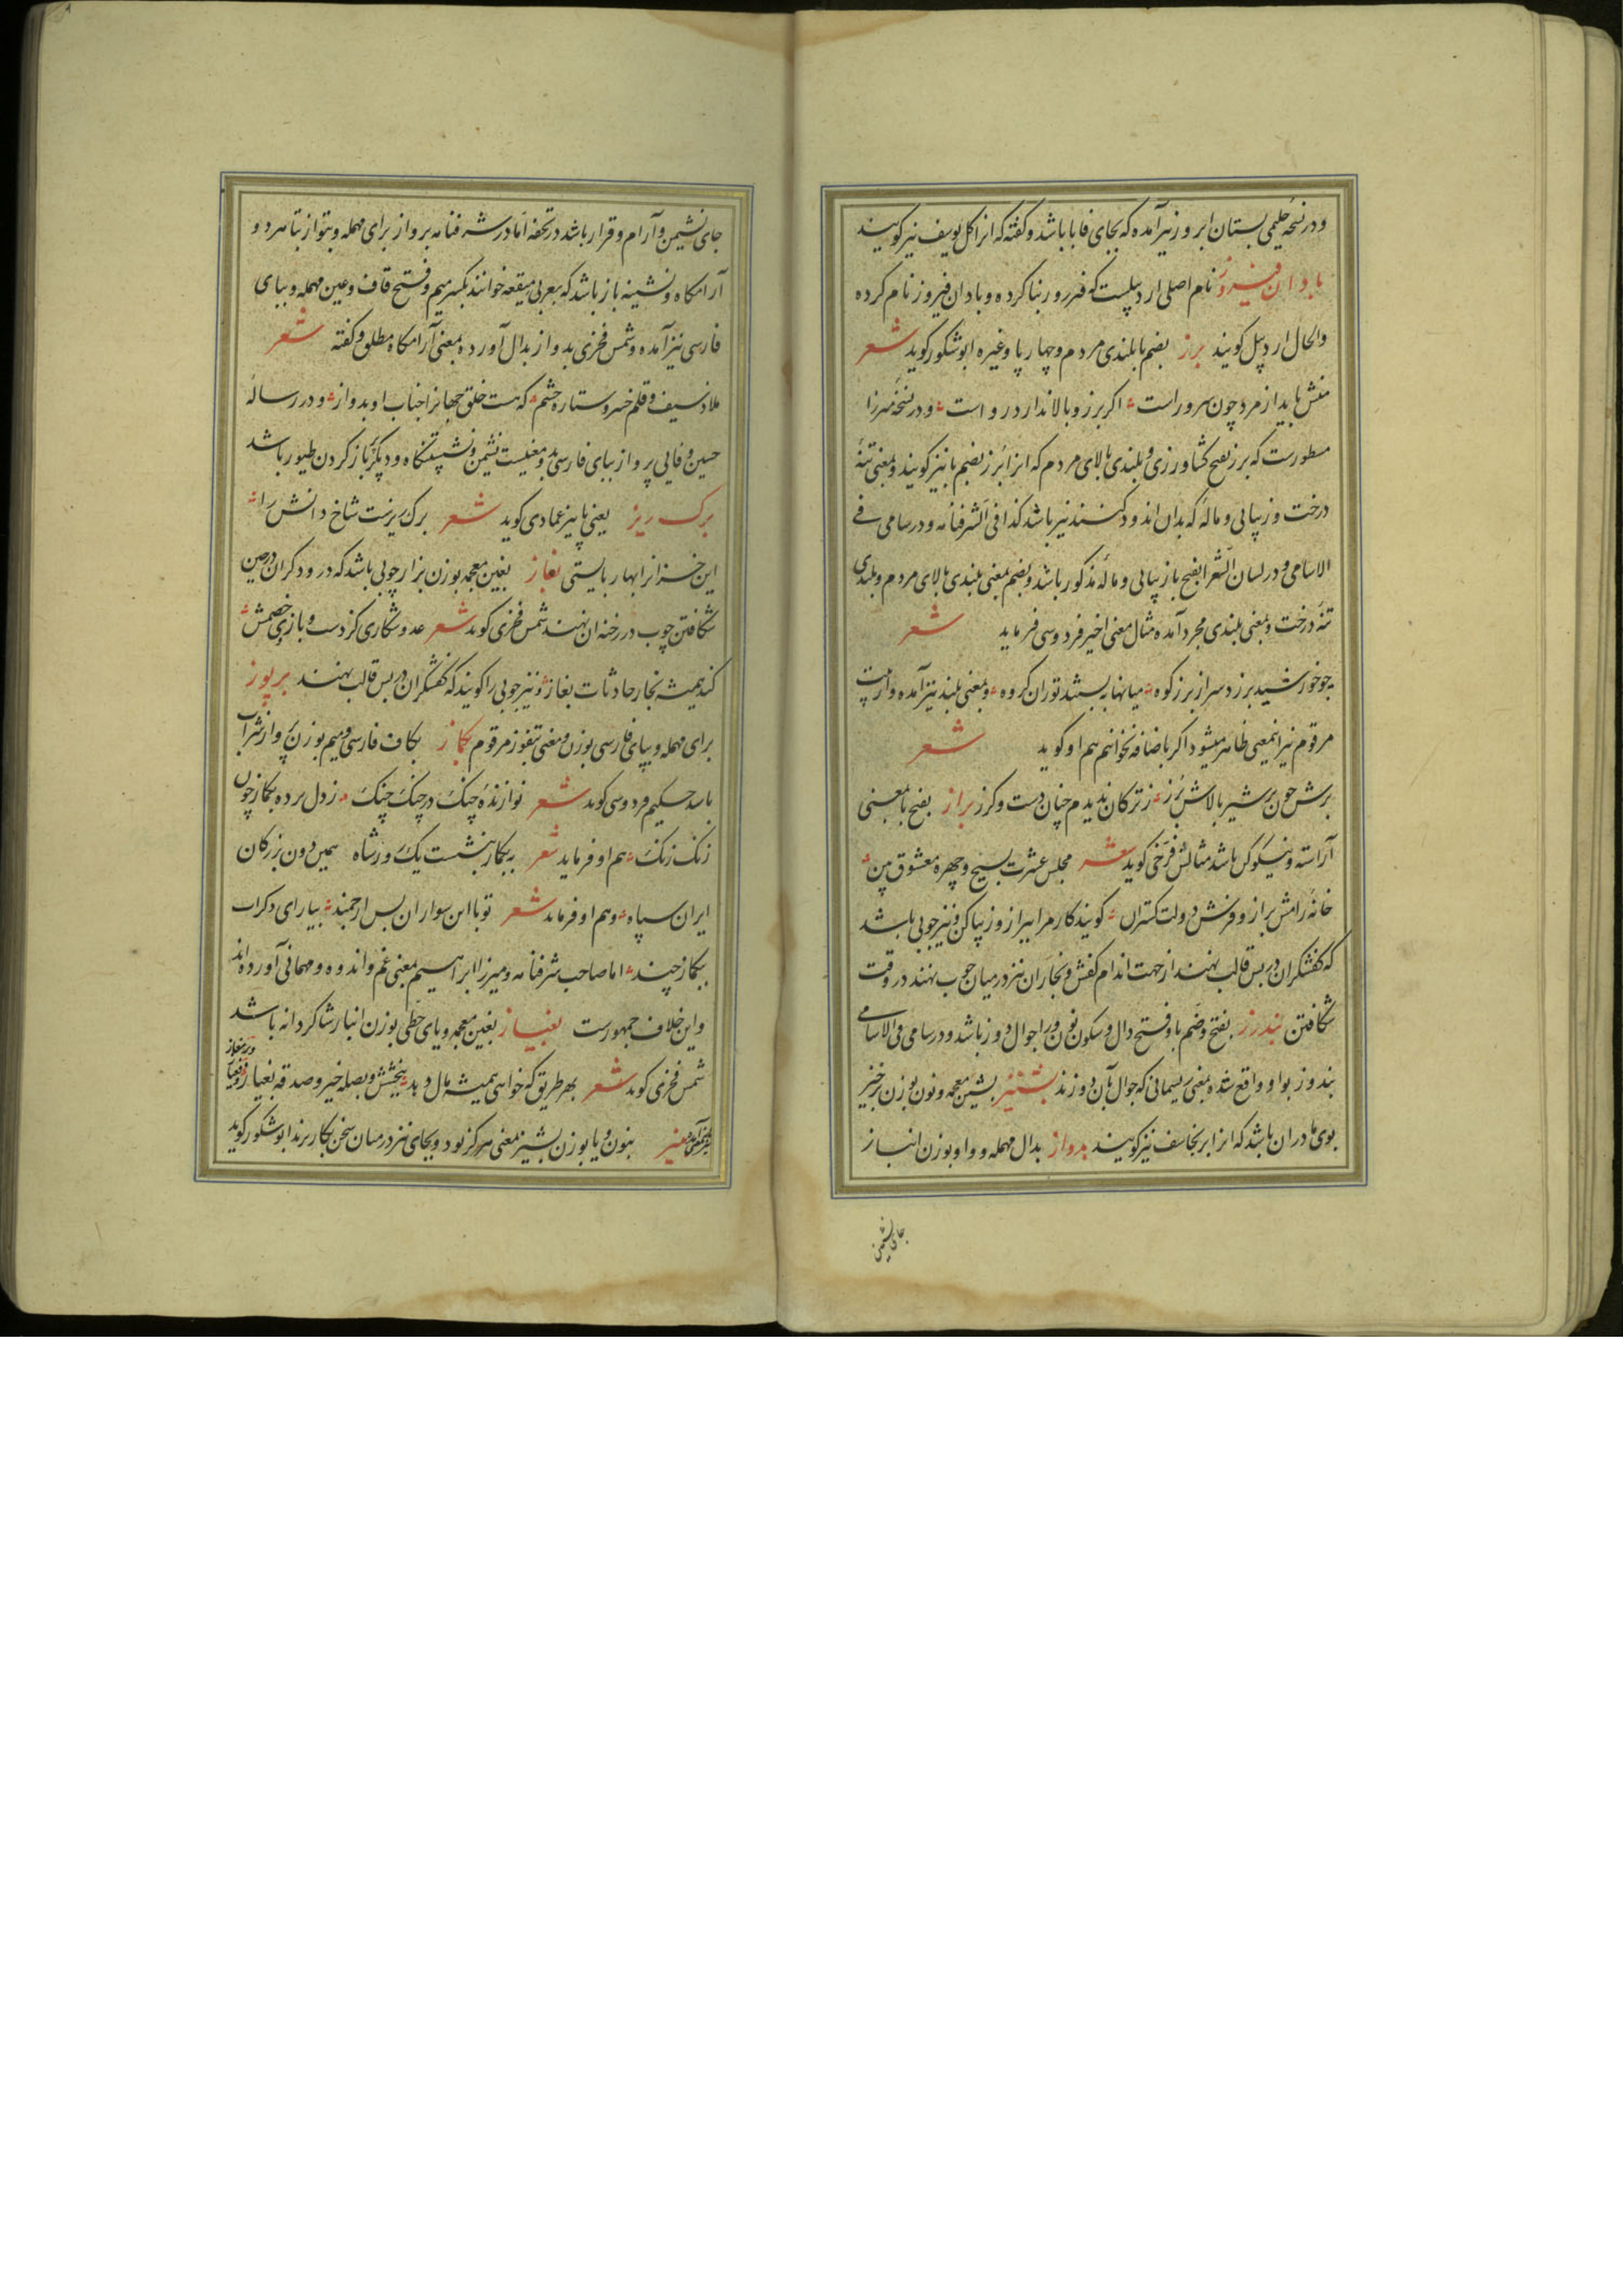 و در نسخهٔ حلیمی بستان ابروز نیز آمده که بجای فا با باشد و گفته که انرا کل یوسف نیز کویند
بادان فیروز نام اصلی اردبیلست که فیروز بنا کرده و بادان فیروز نام کرده
والحال اردبیل کویند برز بضم با بلندی مردم و چهارپا و غیره ابوشکور کوید شعر
منش باید از مرد چون سرو راست اکر برز و بالا ندارد رواست و در نسخهٔ میرزا
مسطورست که برز بفتح کشاورزی و بلندی بالای مردم که انرا برز بضم با نیز کویند و بمعنی تنهٔ
درخت و زیبایی و ماله که بدان اندود کنند نیز باشد کذا فی الشرفنامه و در سامی فی
الاسامی و در لسان الشعرا بفتح با زیبایی و مالهٔ مذکور باشد و بضم بمعنی بلندی بالای مردم و بلندی
تنهٔ درخت و بمعنی بلندی مجرد آمده مثال معنی اخیر فردوسی فرماید شعر
چو خورشید برزد سر از برز کوه میانها ببستند توران کروه و بمعنی بلند نیز آمده و از بیت
مرقوم نیز اینمعنی ظاهر میشود اکر باضافه نخوانیم هم او کوید شعر
برش چون بر شیر بالاش برز ز ترکان ندیدم چنان دست و کرز براز بفتح با بمعنی
آراسته و نیکوکن باشد مثالش فرخی کوید شعر مجلس عشرت بسیج و چهره معشوق بین
خانه رامش براز و فرش دولت کستران کویند کار مرا ببراز و زیبا کن و نیز چوبی باشد
که کفشکران در پس قالب نهند از جهت اندام کفش و نجاران نیز در میان چوب نهند در وقت
شکافتن بندرز بفتح و ضم با و فتح دال و سکون نون و را جوال دوز باشد و در سامی فی الاسامی
بندوز بواو واقع شده بمعنی ریسمانی که جوال بآن دوزند بشنیز بشین معجمه و نون بوزن برخیز
بوی مادران باشد که انرا برنجاسف نیز کویند بدواز بدال مهمله و واو بوزن انباز
جای نشیمن
جای نشیمن و آرام و قرار باشد در تحفه اما در شرفنامه برواز برای مهمله و بتواز بتا هر دو
آرامکاه و نشیمنه باز باشد که بعربی میقعه خوانند بکسر میم و فتح قاف و عین مهمله و ببای
فارسی نیز آمده و شمس فخری بدواز بدال آورده بمعنی آرامکاه مطلق و کفته شعر
ملاذ سیف و قلم خسرو ستاره حشم که هست خلق جهانرا جناب او بدواز و در رساله
حسین وفایی پرواز ببای فارسی بدو معنیست نشیمن و نشستنکاه و دیکر پر باز کردن طیور باشد
برک ریز یعنی پاییز عمادی کوید شعر برک ریزست شاخ دانش را
این خزانرا بهار بایستی بغاز بغین معجمه بوزن براز چوبی باشد که درودکران در حین
شکافتن چوب در رخنه ان نهند شمس فخری کوید شعر عدو شکاری کز دست و بازوی خصمش
کند همیشه نجار حادثات بغاز و نیز چوبی را کویند که کفشکران در پس قالب نهند برپوز
برای مهمله و ببای فارسی بوزن و معنی بتفوز مرقوم بکماز بکاف فارسی و میم بوزن پرواز شراب
باشد حکیم فردوسی کوید شعر نوازنده چنک در چنک چنک ز دل برده بکماز چون
زنک زنک هم او فرماید شعر به بکماز بنشست یک روز شاه همیدون بزرکان
ایران سپاه و هم او فرماید شعر تو با این سواران بس ارجمند بیارای دکراب
بکماز چند اما صاحب شرفنامه و میرزا ابراهیم بمعنی غم و اندوه و مهمانی آورده‌اند
و این خلاف جمهورست بغیاز بغین معجمه و یای حطی بوزن انباز شاکردانه باشد
شمس فخری کوید شعر بهر طریق که خواهی همیشه مال دهد ببخشش و بصله خیر و صدقه بغیاز
بنون و یا بوزن بشیز بمعنی هرکز بود و بجای نیز در میان سخن بکار برند ابوشکور کوید